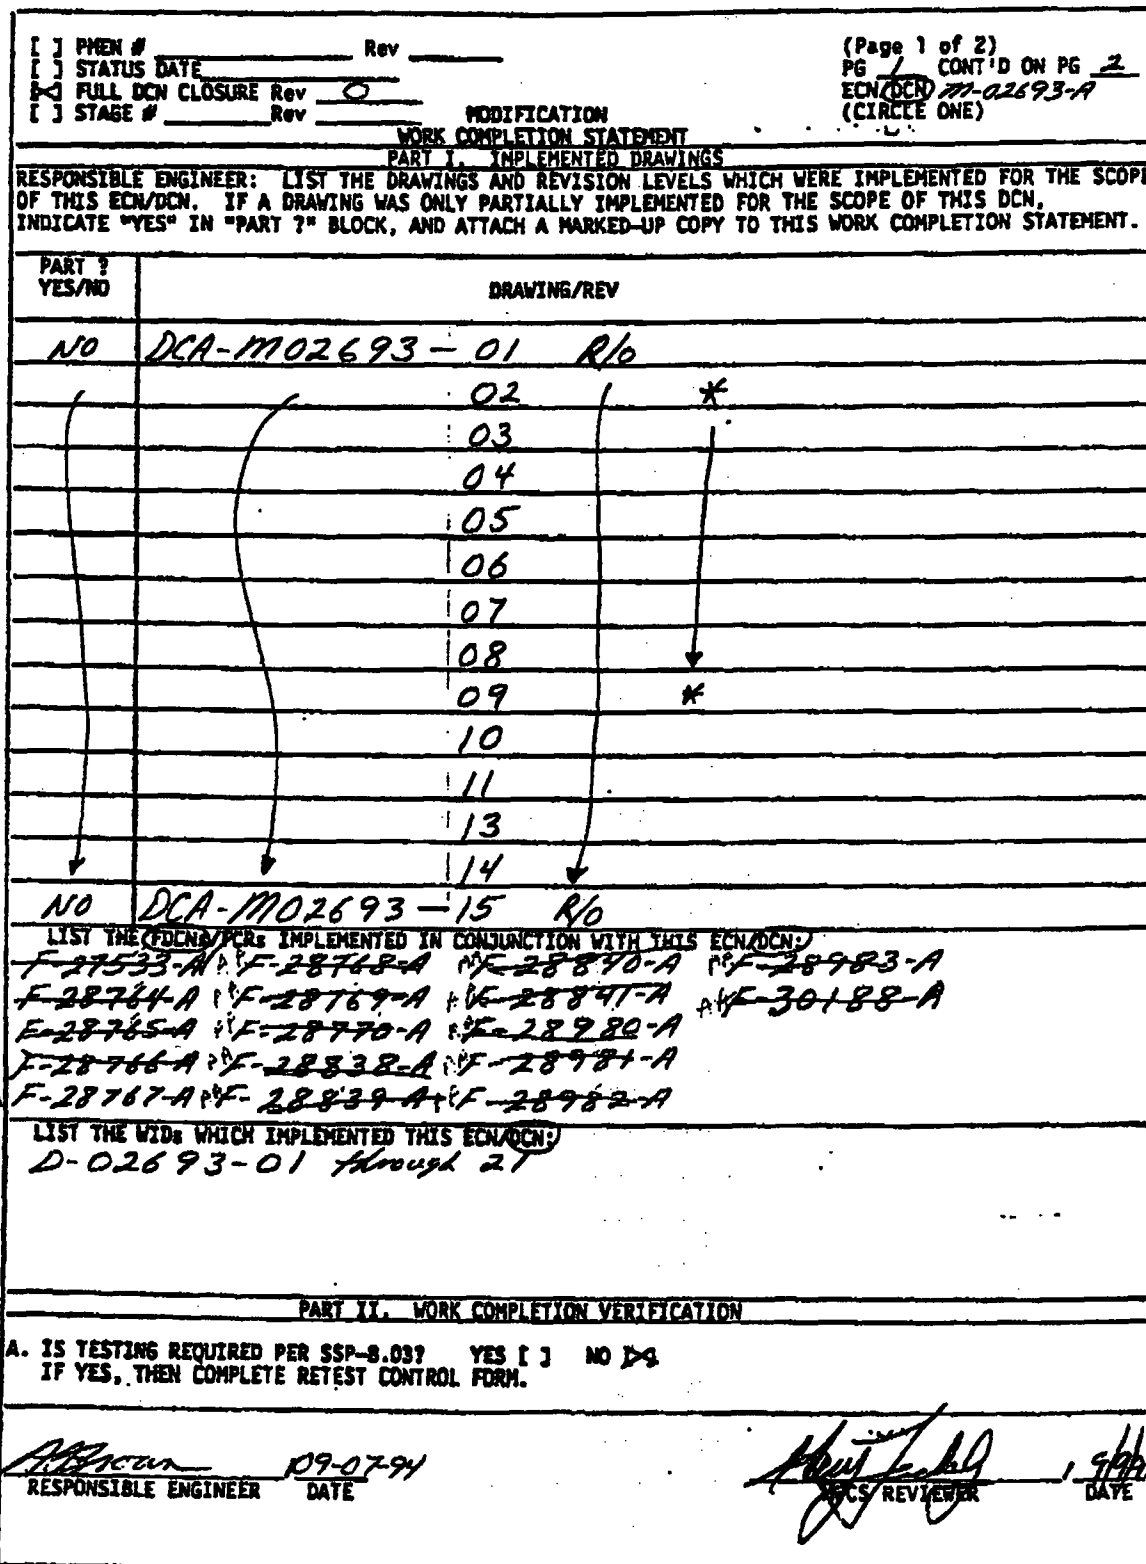 [ ] PMEN # Rev
[ ] STATUS DATE
[X] FULL DCN CLOSURE Rev 0
[ ] STAGE # Rev
(Page 1 of 2)
PG 1 CONT'D ON PG 2
ECN/DCN M-02693-A
(CIRCLE ONE)
MODIFICATION
WORK COMPLETION STATEMENT
PART I. IMPLEMENTED DRAWINGS
RESPONSIBLE ENGINEER: LIST THE DRAWINGS AND REVISION LEVELS WHICH WERE IMPLEMENTED FOR THE SCOPE
OF THIS ECN/DCN. IF A DRAWING WAS ONLY PARTIALLY IMPLEMENTED FOR THE SCOPE OF THIS DCN,
INDICATE "YES" IN "PART ?" BLOCK, AND ATTACH A MARKED-UP COPY TO THIS WORK COMPLETION STATEMENT.
PART ?
YES/NO
DRAWING/REV
NO DCA-M02693-01 R/0
02 *
03
04
05
06
07
08
09 *
10
11
13
14
NO DCA-M02693-15 R/0
LIST THE FDCNs/PCRs IMPLEMENTED IN CONJUNCTION WITH THIS ECN/DCN:
F-27533-A F-28768-A F-28840-A F-28983-A
F-28764-A F-28769-A F-28841-A F-30188-A
F-28765-A F-28770-A F-28980-A
F-28766-A F-28838-A F-28981-A
F-28767-A F-28839-A F-28982-A
LIST THE WIDs WHICH IMPLEMENTED THIS ECN/DCN:
D-02693-01 through 21
PART II. WORK COMPLETION VERIFICATION
A. IS TESTING REQUIRED PER SSP-8.03? YES [ ] NO [X]
IF YES, THEN COMPLETE RETEST CONTROL FORM.
09-07-94
RESPONSIBLE ENGINEER DATE
REVIEWER DATE